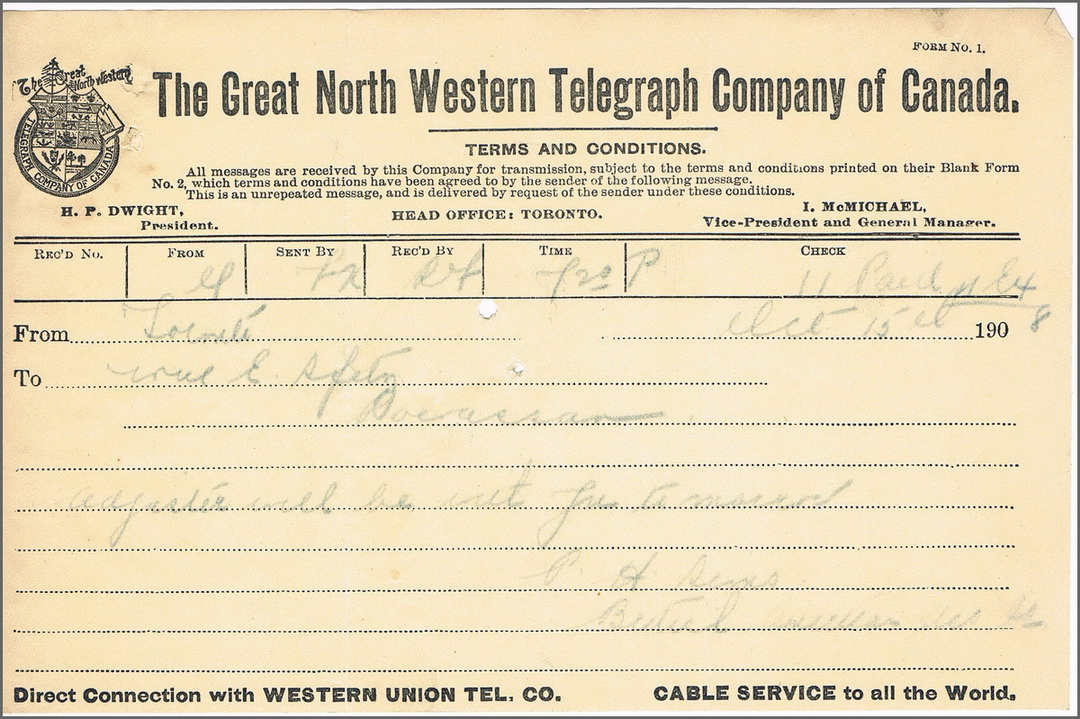 FORM No. 1.
The Great North Western
TELEGRAPH COMPANY OF CANADA
The Great North Western Telegraph Company of Canada.
TERMS AND CONDITIONS.
All messages are received by this Company for transmission, subject to the terms and conditions printed on their Blank Form
No. 2, which terms and conditions have been agreed to by the sender of the following message.
This is an unrepeated message, and is delivered by request of the sender under these conditions.
H. P. DWIGHT,
President.
HEAD OFFICE: TORONTO.
I. McMICHAEL,
Vice-President and General Manager.
REC'D No. FROM SENT BY REC'D BY TIME CHECK
11 Paid
From Toronto Oct 15th 1908
To
adjuster will be with you to morrow
P. H. Sims
British American
Direct Connection with WESTERN UNION TEL. CO. CABLE SERVICE to all the World.